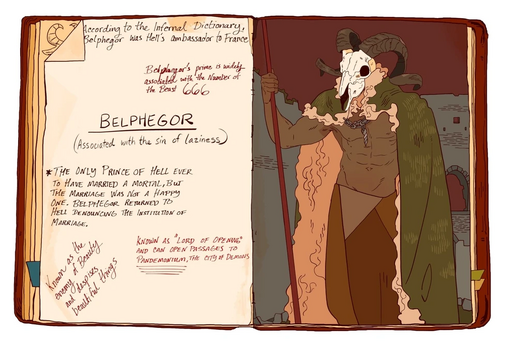 According to the Infernal Dictionary,
Belphegor was Hell's ambassador to France
Belphegor's prime is widely
associated with the Number of
the Beast 666
BELPHEGOR
(Associated with the sin of laziness)
*THE ONLY PRINCE OF HELL EVER
TO HAVE MARRIED A MORTAL, BUT
THE MARRIAGE WAS NOT A HAPPY
ONE. BELPHEGOR RETURNED TO
HELL DENOUNCING THE INSTITUTION OF
MARRIAGE.
Known as the
enemy of Beauty
and despises
beautiful things
KNOWN AS "LORD OF OPENING"
AND CAN OPEN PASSAGES TO
PANDEMONIUM, THE CITY OF DEMONS